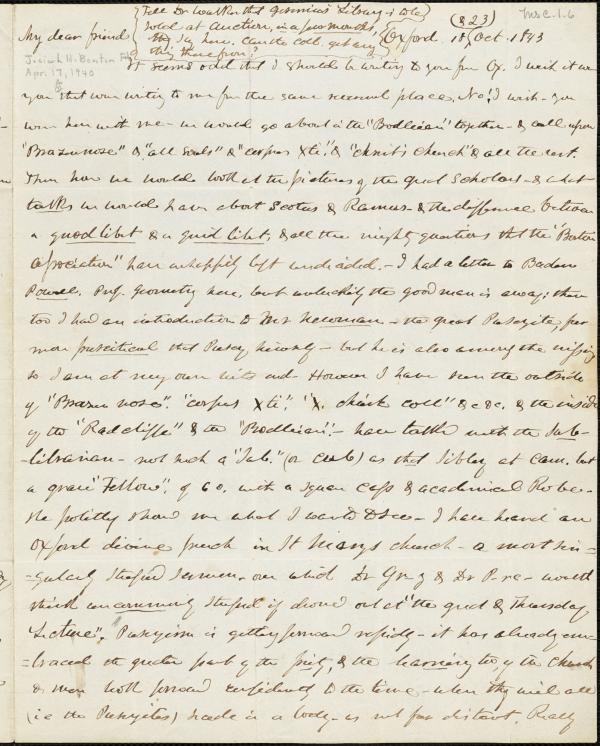 Tell Dr Walker that Gesenius' Library is to be
sold at Auction, in a few months,
Can the Coll. get any
thing there from?
My dear friend
(& 23)
Oxford. 18 Oct. 1843
Ms C.1.6
Josiah H. Benton Fd
Apr. 17, 1940
It seems odd that I should be writing to you from Ox. I wish it were
you that were writing to me from the same place. No! I wish you
were here with me - we would go about in the "Bodleian" together - & call upon
"Brazennose" & "all Souls" & "corpus Xti", & "Christ's Church" & all the rest.
Then how we would look at the pictures of the great Scholars - & what
talks we would have about Scotus & Ramus - & the difference between
a quodlibet & a quidlibet, & all the mighty questions that the "Boston
Association" have unhappily left undecided. - I had a letter to Baden
Powell. Prof. Geometry here, but unluckily the good man is away; then
too I had an introduction to Mr Newman - the great Puseyite, far
more puseitical than Pusey himself - but he is also among the missing
so I am at my own wits end. However I have seen the outside
of "Brazen nose". "corpus Xti", "X. church coll" &c &c. & the inside
of the "Radcliffe" & the "Bodleian". - have talked with the Sub-
-librarian - not such a "Sub." (or cub) as that Sibley at Cam. but
a grave "Fellow". of 60. with a square cap & academical Robe -
He politely showed me what I wanted to see - I have heard an
Oxford divine preach in St Marys church - a most sin-
=gularly stupid sermon. one which Dr G & Dr P would
think uncommonly stupid if droned out at "the great & Thursday
Lecture". Puseyism is getting forward rapidly - it has already em-
=braced the greater part of the piety, & the learning too of the church
& men look forward confidently to the time - when they will all
(i e the Puseyites) secede in a body - as not far distant. Really